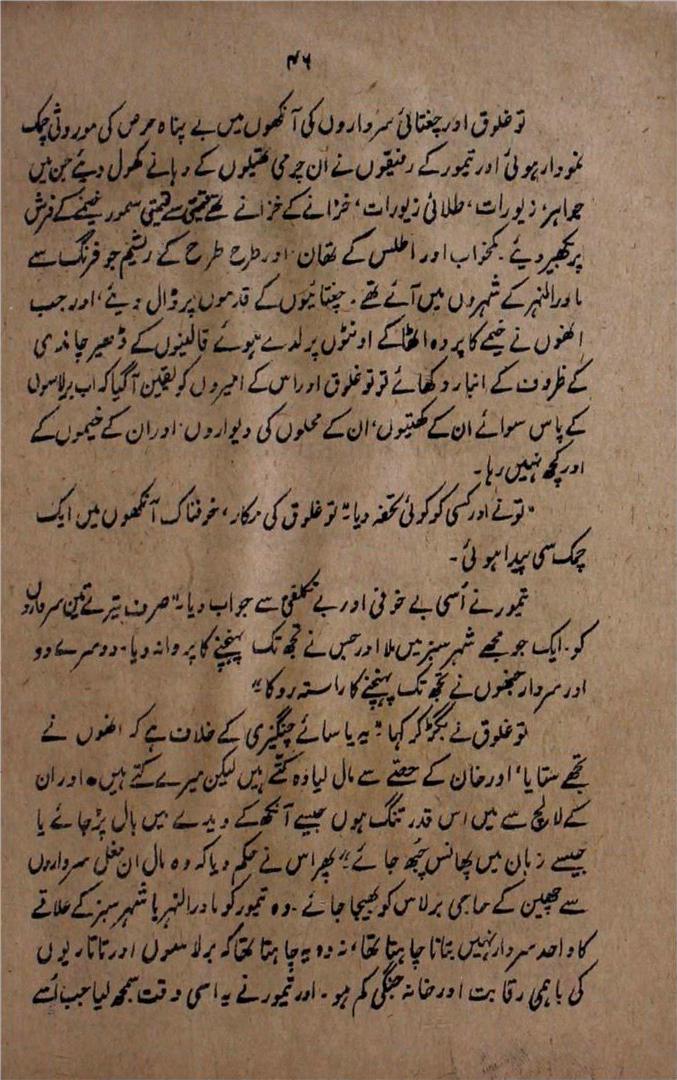 ۴۶
تو غلوق اور چغتائی سرداروں کی آنکھوں میں بے پناہ حرص کی موروثی چمک
نمودار ہوئی اور تیمور کے رفیقوں نے ان چرمی تھیلوں کے دہانے کھول دیئے جن میں
جواہر، زیورات، طلائی زیورات، خزانے کے خزانے تھے قیمتی سے قیمتی سمور خیمے کے فرش
پر بکھیر دیئے۔ کمخواب اور اطلس کے تھان اور طرح طرح کے ریشم جو فرنگ سے
ماورالنہر کے شہروں میں آئے تھے۔ چغتائیوں کے قدموں پر ڈال دیئے، اور جب
انھوں نے خیمے کا پردہ اٹھا کے اونٹوں پر لدے ہوئے قالینوں کے ڈھیر چاندی
کے ظروف کے انبار دکھائے تو تو غلوق اور اس کے امیروں کو یقین آگیا کہ اب برلاسوں
کے پاس سوائے ان کے کھیتوں، ان کے محلوں کی دیواروں اور ان کے خیموں کے
اور کچھ نہیں رہا۔
"تو نے اور کسی کو کوئی تحفہ دیا؟" تو غلوق کی مکار، خوفناک آنکھوں میں ایک
چمک سی پیدا ہوئی۔
تیمور نے اُسی بے خوفی اور بے تکلفی سے جواب دیا۔ "صرف تیرے تین سرداروں
کو۔ ایک جو مجھے شہر سبز میں ملا اور جس نے تجھ تک پہنچنے کا پروانہ دیا۔ دوسرے دو
اور سردار جنھوں نے تجھ تک پہنچنے کا راستہ روکا۔"
تو غلوق نے بگڑ کر کہا "یہ یاسائے چنگیزی کے خلاف ہے کہ انھوں نے
تجھے ستایا، اور خان کے حصے سے مال لیا وہ کتے ہیں لیکن میرے کتے ہیں۔ اور ان
کے لالچ سے میں اس قدر تنگ ہوں جیسے آنکھ کے دیدے میں بال پڑ جائے یا
جیسے زبان میں پھانس چُبھ جائے۔" پھر اس نے حکم دیا کہ وہ مال ان مغل سرداروں
سے چھین کے حاجی برلاس کو بھیجا جائے۔ وہ تیمور کو ماورالنہر یا شہر سبز کے علاقے
کا واحد سردار نہیں بنانا چاہتا تھا، نہ وہ یہ چاہتا تھا کہ برلاسوں اور تاتاریوں
کی باہمی رقابت اور خانہ جنگی کم ہو۔ اور تیمور نے یہ اسی وقت سمجھ لیا جب اُسے